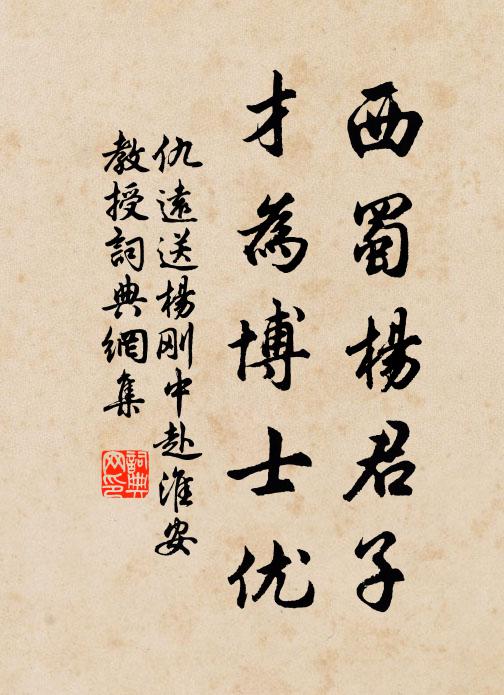 西蜀楊君子
才為博士优
仇遠送楊刚中赴淮安
教授詞典網集
詞典网印